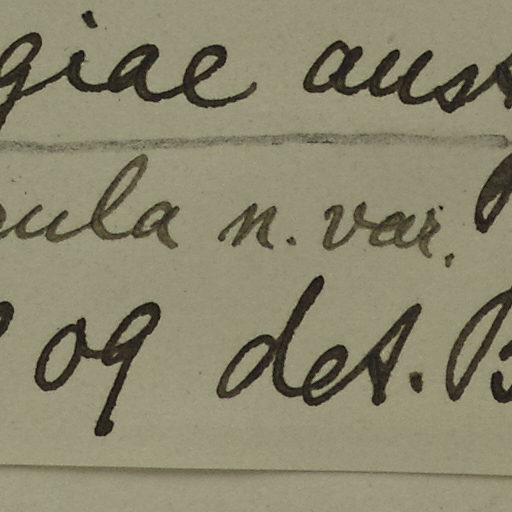 giae aust
ula n. var.
og det. B